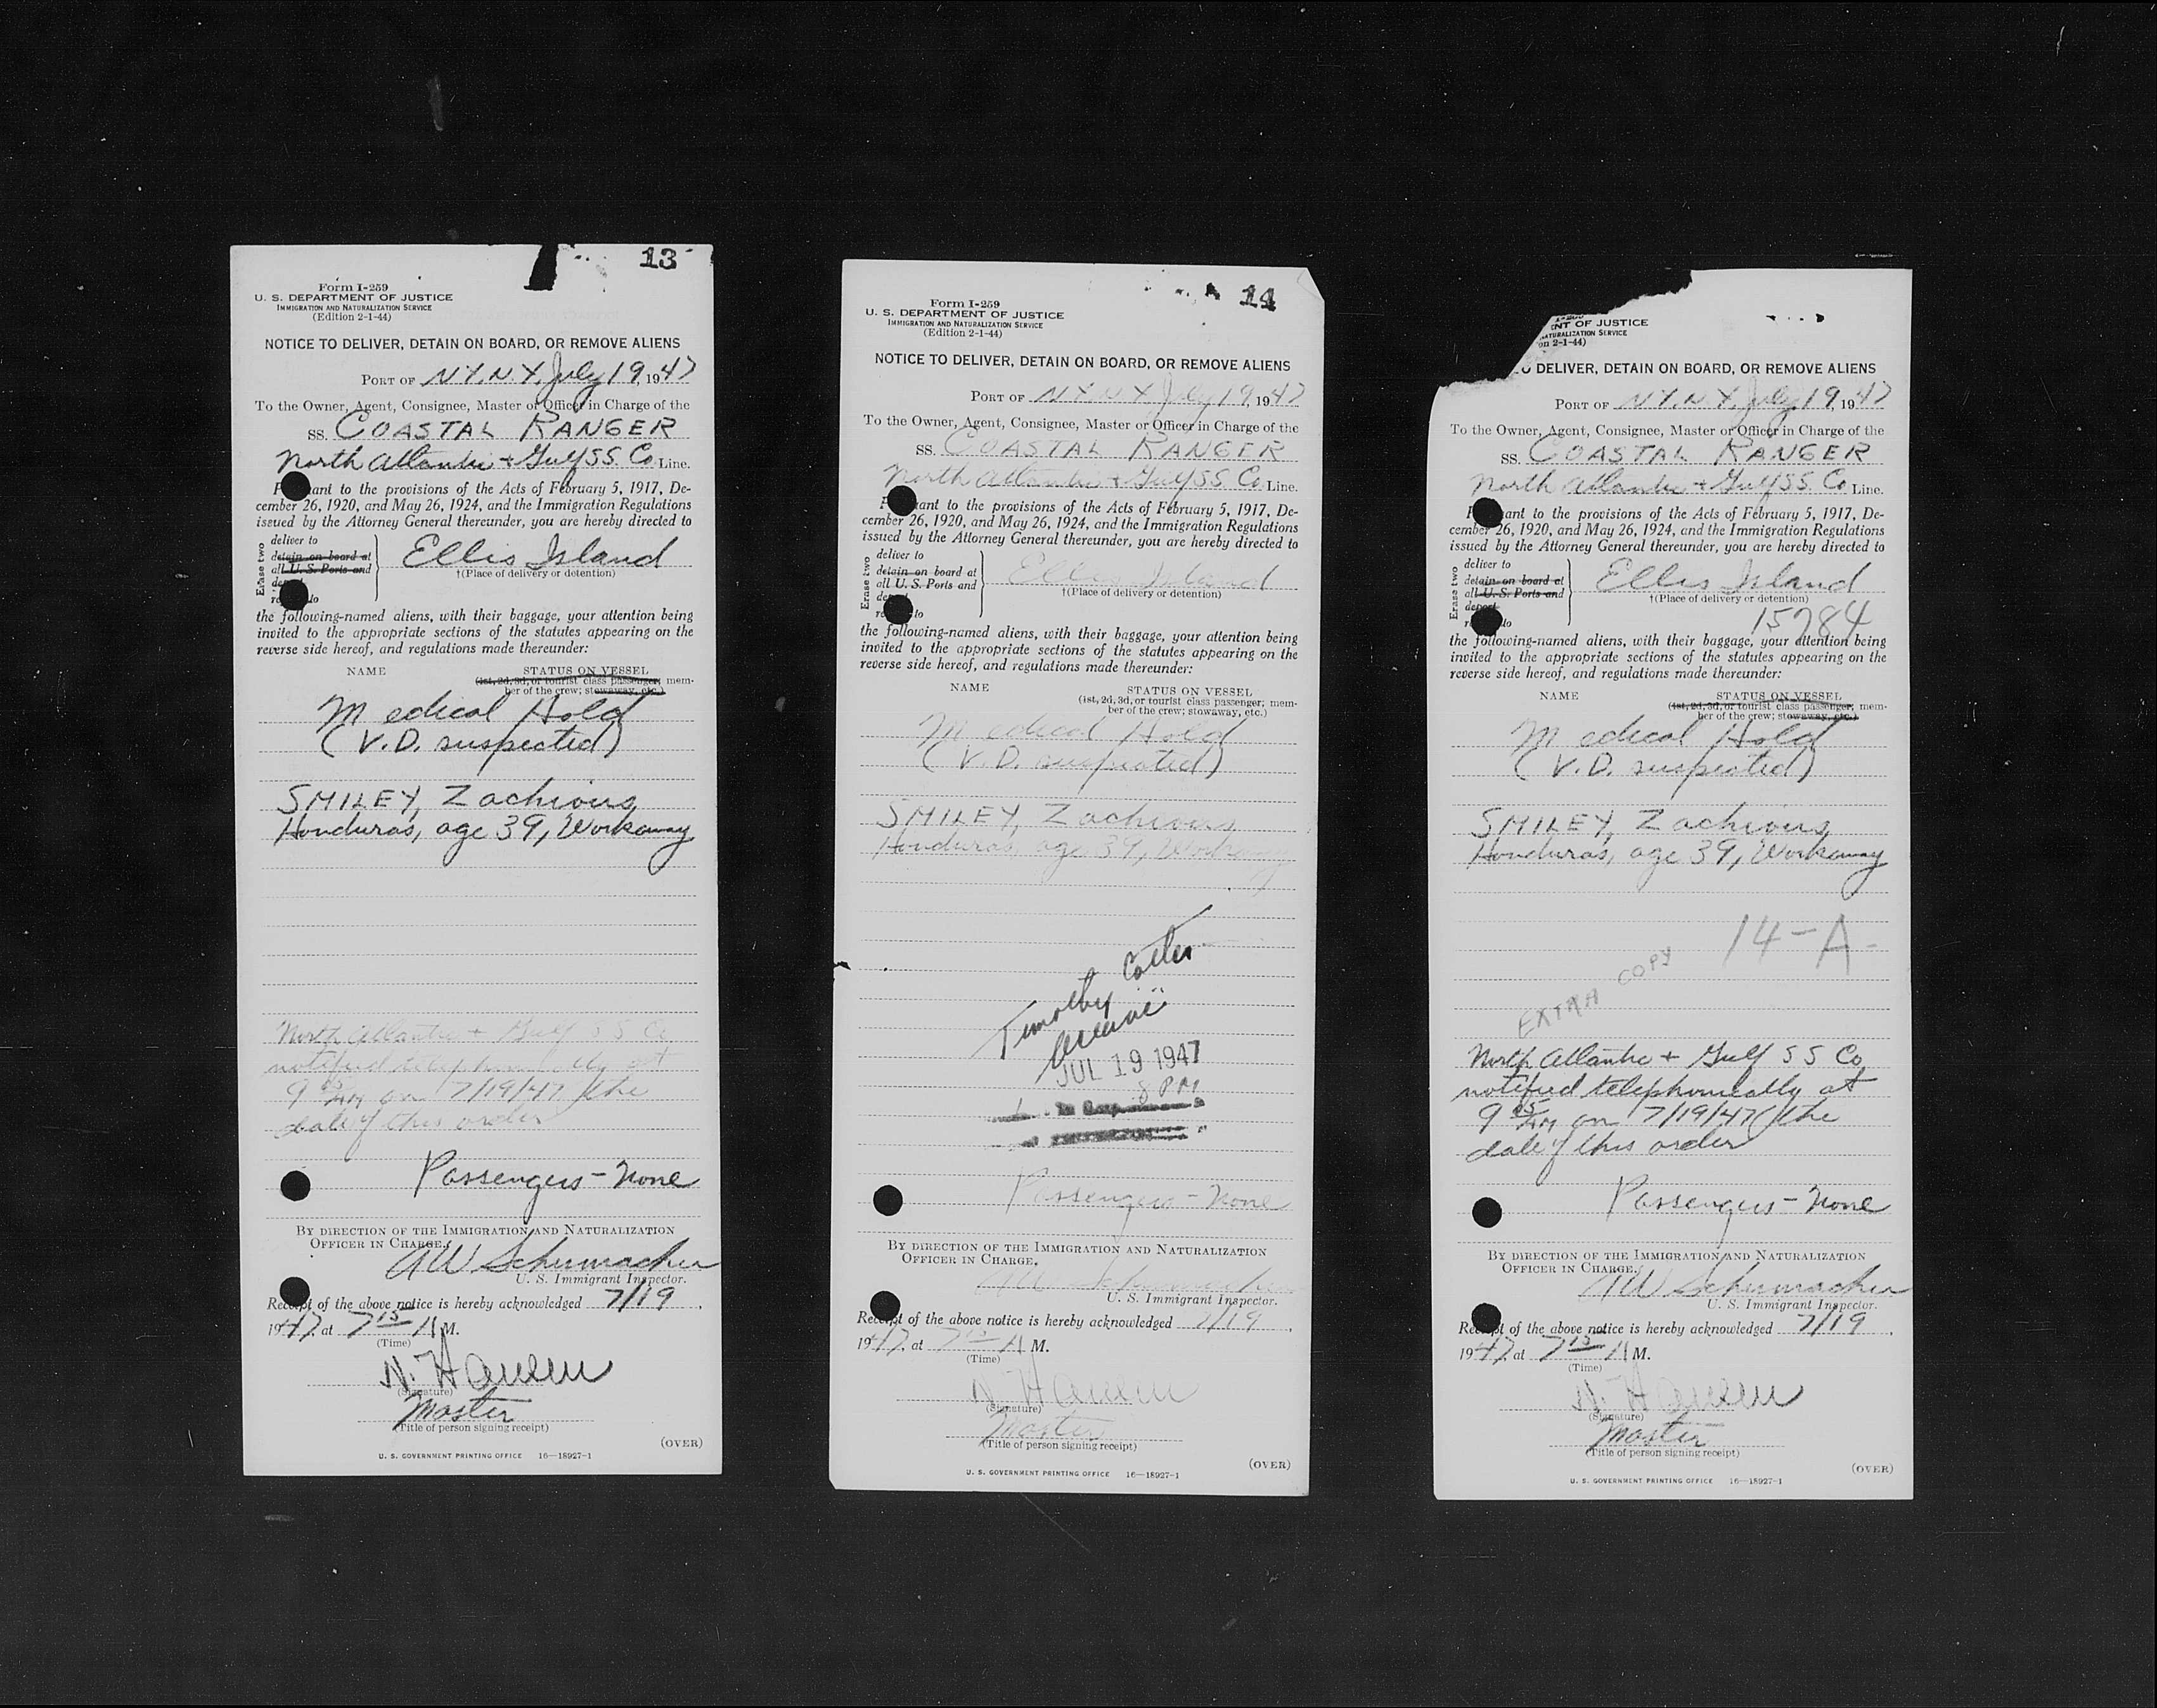 13
Form I-259
U. S. DEPARTMENT OF JUSTICE
IMMIGRATION AND NATURALIZATION SERVICE
(Edition 2-1-44)
NOTICE TO DELIVER, DETAIN ON BOARD, OR REMOVE ALIENS
PORT OF N.Y. N.Y. July 19, 1947
To the Owner, Agent, Consignee, Master or Officer in Charge of the
SS. COASTAL RANGER
North Atlantic + Gulf SS. Co Line.
P ant to the provisions of the Acts of February 5, 1917, De-
cember 26, 1920, and May 26, 1924, and the Immigration Regulations
issued by the Attorney General thereunder, you are hereby directed to
Erase two
deliver to
detain on board at
all U. S. Ports and
dep
r to
Ellis Island
†(Place of delivery or detention)
the following-named aliens, with their baggage, your attention being
invited to the appropriate sections of the statutes appearing on the
reverse side hereof, and regulations made thereunder:
NAME STATUS ON VESSEL
(1st, 2d, 3d, or tourist class passenger; mem-
ber of the crew; stowaway, etc.)
Medical Hold
(V.D. suspected)
SMILEY, Zachious,
Honduras, age 39, Workaway
North Atlantic + Gulf SS Co
notified telephonically at
9 05 AM on 7/19/47 the
date of this order
Passengers - None
BY DIRECTION OF THE IMMIGRATION AND NATURALIZATION
OFFICER IN CHARGE.
AW Schumacher
U. S. Immigrant Inspector.
Receipt of the above notice is hereby acknowledged 7/19,
1947, at 7 15 A M.
(Time)
N. Hansen
(Signature)
Master
(Title of person signing receipt)
(OVER)
U. S. GOVERNMENT PRINTING OFFICE 16—18927-1
14
Form I-259
U. S. DEPARTMENT OF JUSTICE
IMMIGRATION AND NATURALIZATION SERVICE
(Edition 2-1-44)
NOTICE TO DELIVER, DETAIN ON BOARD, OR REMOVE ALIENS
PORT OF N.Y. N.Y. July 19, 1947
To the Owner, Agent, Consignee, Master or Officer in Charge of the
SS. COASTAL RANGER
North Atlantic + Gulf SS. Co Line.
P ant to the provisions of the Acts of February 5, 1917, De-
cember 26, 1920, and May 26, 1924, and the Immigration Regulations
issued by the Attorney General thereunder, you are hereby directed to
Erase two
deliver to
detain on board at
all U. S. Ports and
de
r to
Ellis Island
†(Place of delivery or detention)
the following-named aliens, with their baggage, your attention being
invited to the appropriate sections of the statutes appearing on the
reverse side hereof, and regulations made thereunder:
NAME STATUS ON VESSEL
(1st, 2d, 3d, or tourist class passenger; mem-
ber of the crew; stowaway, etc.)
Medical Hold
(V.D. suspected)
SMILEY, Zachious,
Honduras, age 39, Workaway
Timothy
JUL 19 1947
8 PM
Passengers - None
BY DIRECTION OF THE IMMIGRATION AND NATURALIZATION
OFFICER IN CHARGE.
AW Schumacher
U. S. Immigrant Inspector.
Receipt of the above notice is hereby acknowledged 7/19,
1947, at 7 15 A M.
(Time)
N. Hansen
(Signature)
Master
(Title of person signing receipt)
(OVER)
U. S. GOVERNMENT PRINTING OFFICE 16—18927-1
NT OF JUSTICE
NATURALIZATION SERVICE
on 2-1-44)
O DELIVER, DETAIN ON BOARD, OR REMOVE ALIENS
PORT OF N.Y. N.Y. July 19, 1947
To the Owner, Agent, Consignee, Master or Officer in Charge of the
SS. COASTAL RANGER
North Atlantic + Gulf SS. Co Line.
P ant to the provisions of the Acts of February 5, 1917, De-
cember 26, 1920, and May 26, 1924, and the Immigration Regulations
issued by the Attorney General thereunder, you are hereby directed to
Erase two
deliver to
detain on board at
all U. S. Ports and
deport
r to
Ellis Island
†(Place of delivery or detention)
15784
the following-named aliens, with their baggage, your attention being
invited to the appropriate sections of the statutes appearing on the
reverse side hereof, and regulations made thereunder:
NAME STATUS ON VESSEL
(1st, 2d, 3d, or tourist class passenger; mem-
ber of the crew; stowaway, etc.)
Medical Hold
(V.D. suspected)
SMILEY, Zachious,
Honduras, age 39, Workaway
14-A-
EXTRA COPY
North Atlantic + Gulf SS Co
notified telephonically at
9 05 AM on 7/19/47 the
date of this order
Passengers - None
BY DIRECTION OF THE IMMIGRATION AND NATURALIZATION
OFFICER IN CHARGE.
AW Schumacher
U. S. Immigrant Inspector.
Receipt of the above notice is hereby acknowledged 7/19,
1947, at 7 15 A M.
(Time)
N. Hansen
(Signature)
Master
(Title of person signing receipt)
(OVER)
U. S. GOVERNMENT PRINTING OFFICE 16—18927-1